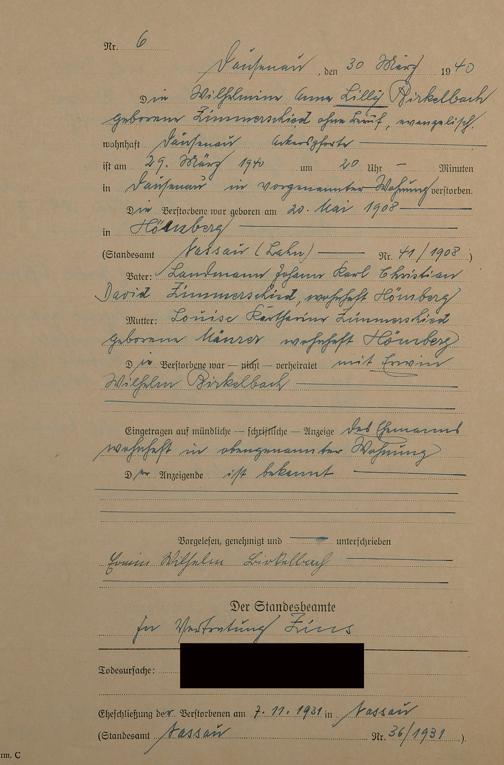 Nr. 6
Dausenau, den 30 März 1940
Die Wilhelmine Anna Lilly Birkelbach
geborene Zimmerschied ohne Beruf, evangelisch.
wohnhaft Dausenau Ackerspforte
ist am 29. März 1940 um 20 Uhr – Minuten
in Dausenau in vorgenannter Wohnung verstorben.
Die Verstorbene war geboren am 20. Mai 1908
in Hömberg
(Standesamt Nassau (Lahn) — Nr. 41/1908)
Vater: Landmann Johann Karl Christian
David Zimmerschied, wohnhaft Hömberg
Mutter: Louise Katharine Zimmerschied
geborene wohnhaft Hömberg
Die Verstorbene war — nicht — verheiratet mit Erwin
Wilhelm Birkelbach
Eingetragen auf mündliche — schriftliche — Anzeige des Ehemanns
wohnhaft in obengenannter Wohnung
Der Anzeigende ist bekannt
Vorgelesen, genehmigt und unterschrieben
Erwin Wilhelm Birkelbach
Der Standesbeamte
In Vertretung Zins
Todesursache:
Eheschließung der Verstorbenen am 7.11.1931 in Nassau
(Standesamt Nassau Nr. 36/1931).
rm. C